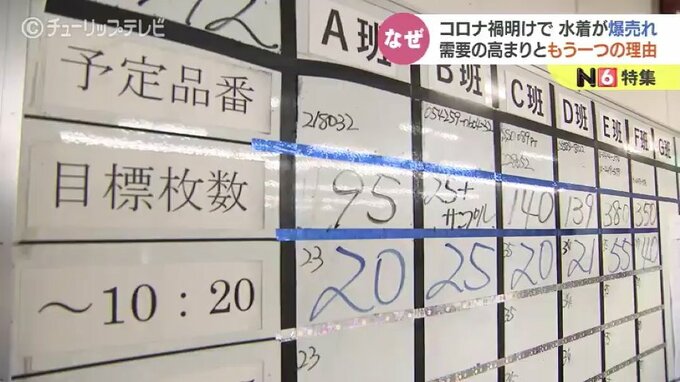 チューリップテレビ
なぜ
コロナ禍明けで 水着が爆売れ
需要の高まりともう一つの理由
N6 特集
A班 B班 C班 D班 E班 F班 G班
予定品番
218032
目標枚数
195 25+サンプル 140 139 380 350
～10：20
23 20 25 20 21 55
23